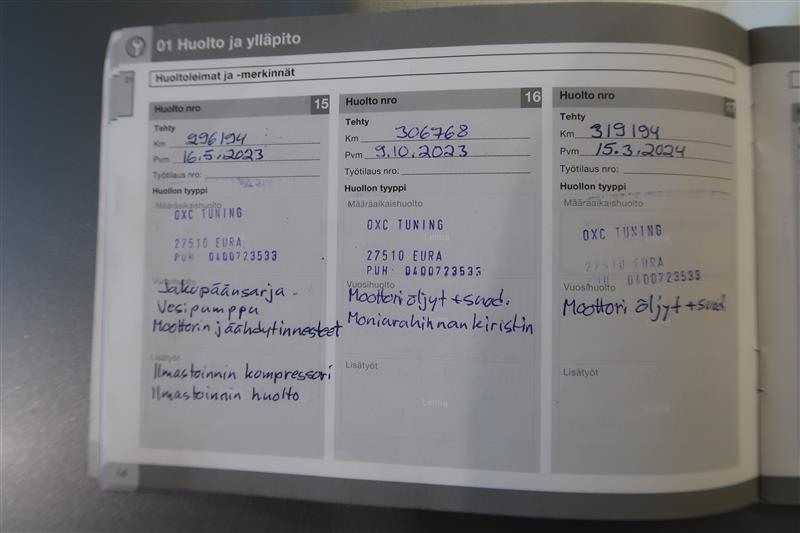 01 Huolto ja ylläpito
Huoltoleimat ja -merkinnät
Huolto nro 15
Tehty
Km 296194
Pvm 16.5.2023
Työtilaus nro:
Huollon tyyppi
Määräaikaishuolto
OXC TUNING
27510 EURA
PUH: 0400723533
Vuosihuolto
Jakopäänsarja
Vesipumppu
Moottorin jäähdytinnesteet
Lisätyöt
Ilmastoinnin kompressori
Ilmastoinnin huolto
Huolto nro 16
Tehty
Km 306768
Pvm 9.10.2023
Työtilaus nro:
Huollon tyyppi
Määräaikaishuolto
OXC TUNING
Leima
27510 EURA
PUH: 0400723533
Vuosihuolto
Moottori öljyt + suod.
Moniurahihnan kiristin
Lisätyöt
Leima
Huolto nro 17
Tehty
Km 319194
Pvm 15.3.2024
Työtilaus nro:
Huollon tyyppi
Määräaikaishuolto
OXC TUNING
27510 EURA
PUH: 0400723533
Vuosihuolto
Moottori öljyt + suod.
Lisätyöt
Leima